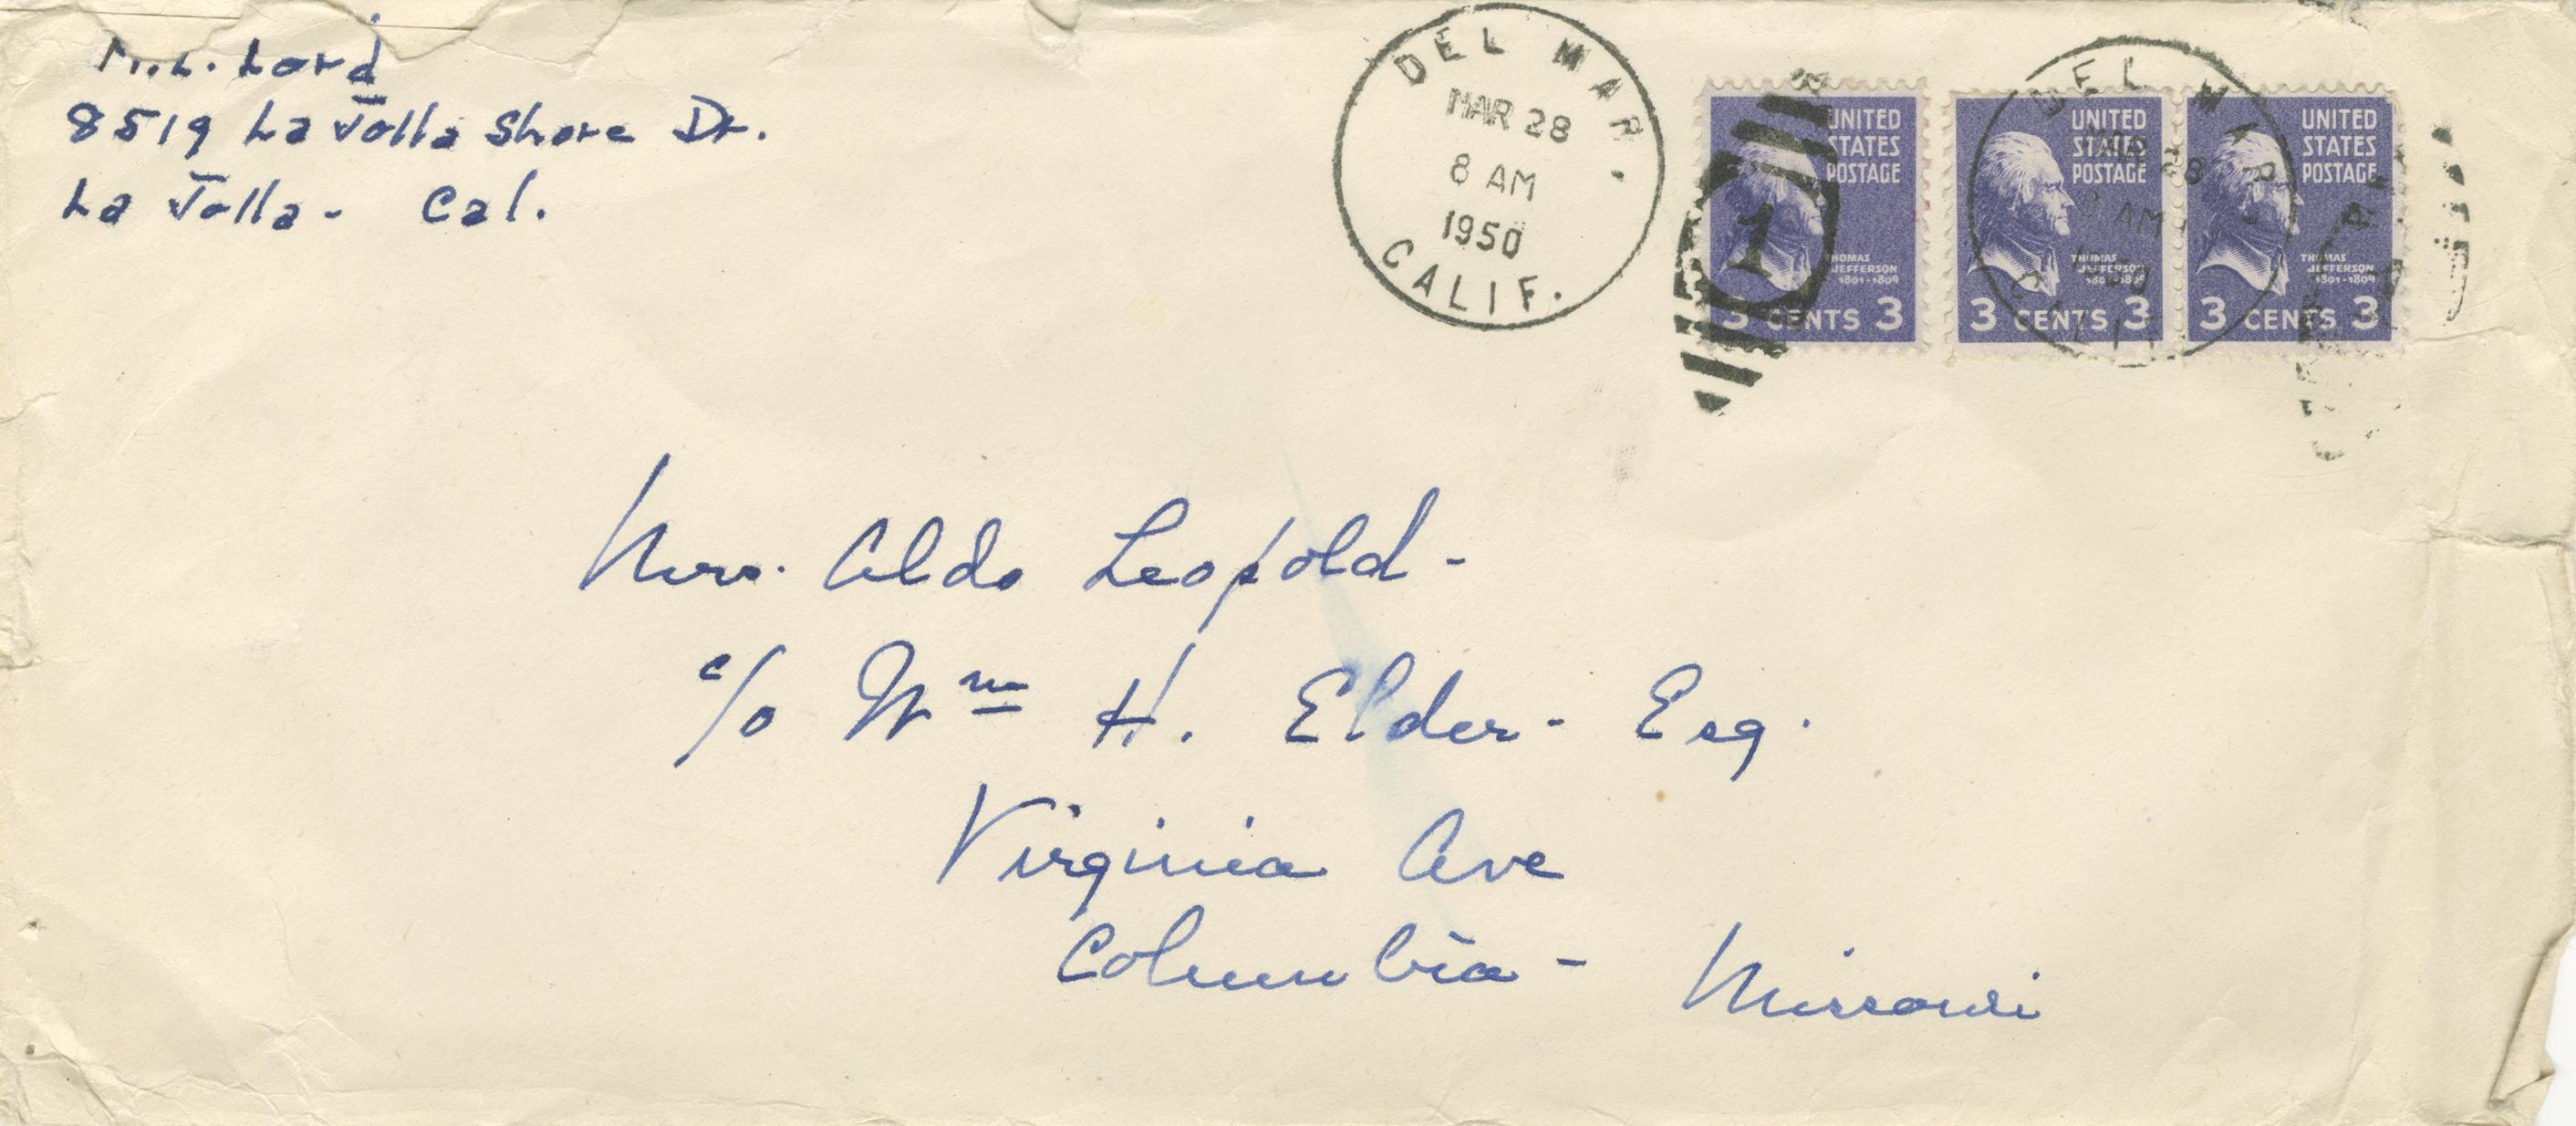 M.L. Lord
8519 La Jolla Shore Dr.
La Jolla - Cal.
DEL MAR.
MAR 28
8 AM
1950
CALIF.
1
UNITED
STATES
POSTAGE
THOMAS
JEFFERSON
1801-1809
3 CENTS 3
DEL MAR.
MAR 28
8 AM
CALIF
UNITED
STATES
POSTAGE
THOMAS
JEFFERSON
1801-1809
3 CENTS 3
UNITED
STATES
POSTAGE
THOMAS
JEFFERSON
1801-1809
3 CENTS 3
Mrs. Aldo Leopold -
c/o Wm H. Elder - Esq.
Virginia Ave
Columbia - Missouri